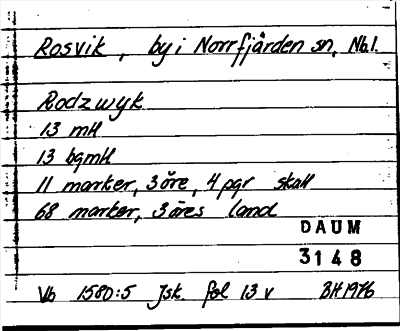 Rosvik, by i Norrfjärden sn, Nb.l.
Rodzwyk
13 mH
13 bgmH
11 marker, 3 öre, 4 pgr skatt
68 marker, 3 öres land
DAUM
3148
Vb 1580:5 Jsk. fol 13 v BH 1976